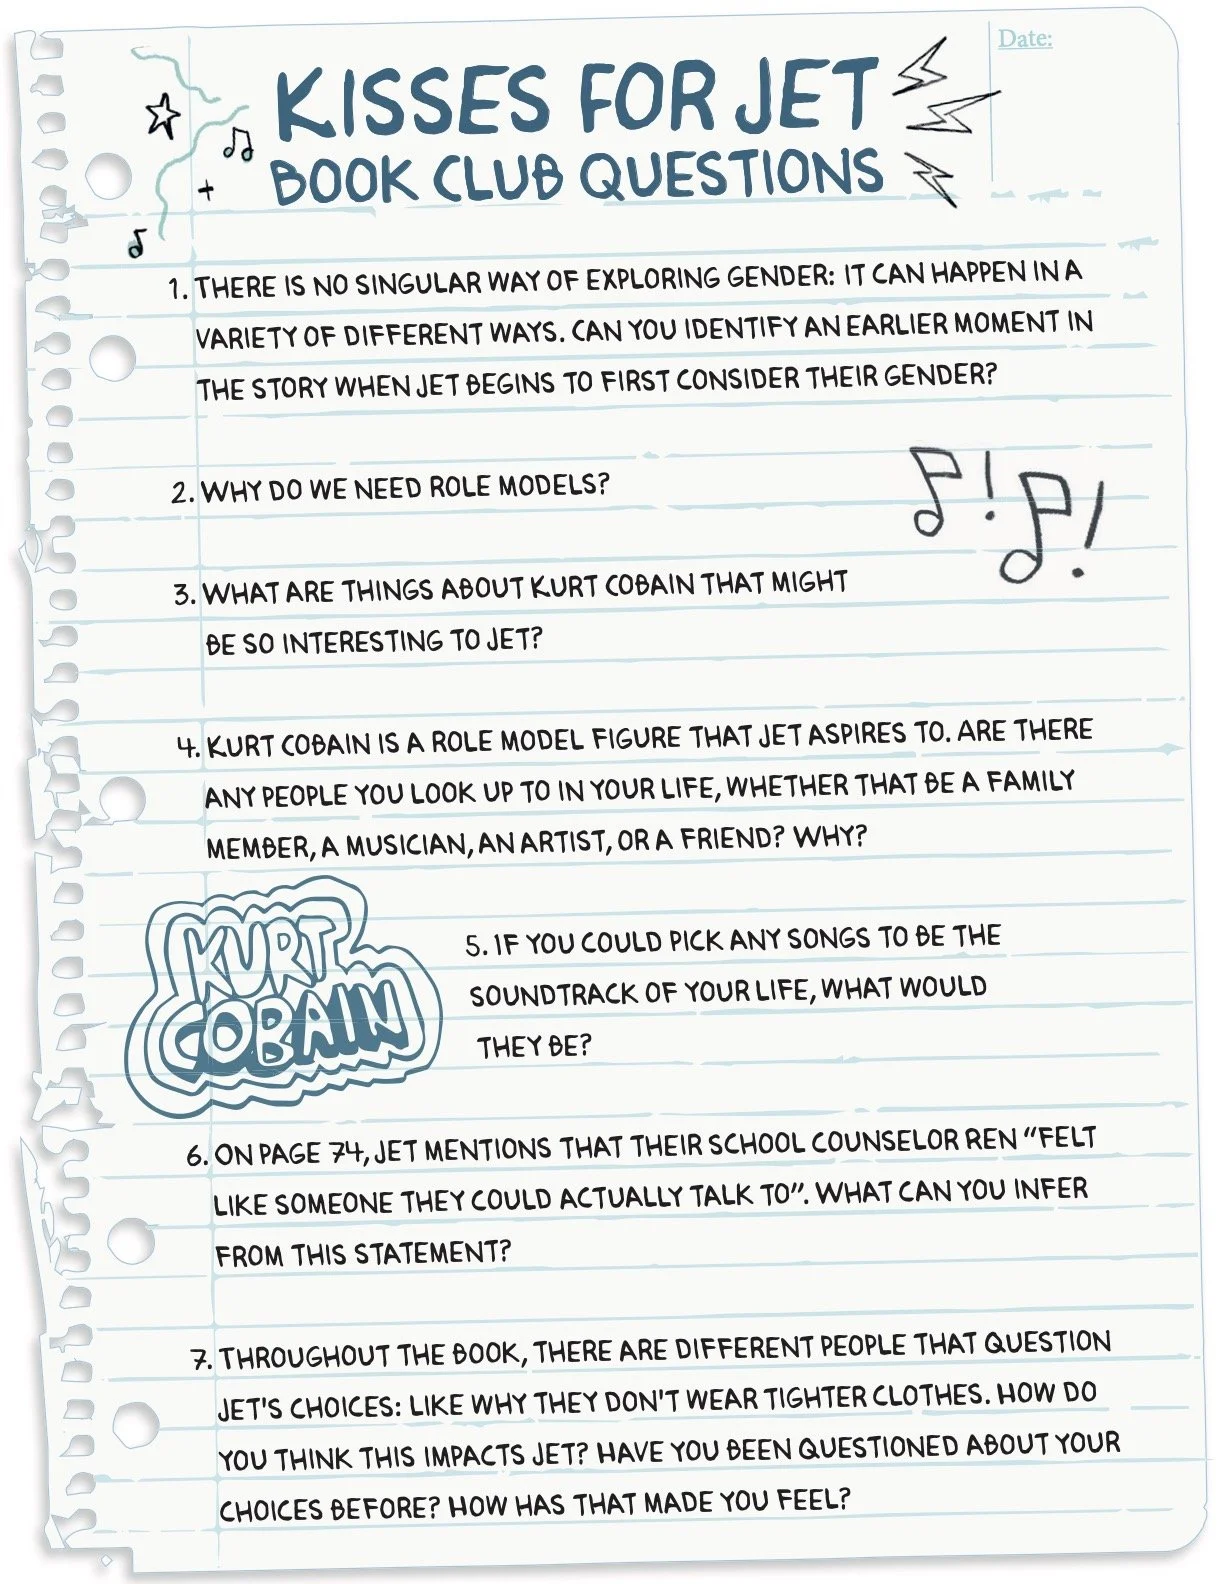 Date:
KISSES FOR JET
BOOK CLUB QUESTIONS
1. THERE IS NO SINGULAR WAY OF EXPLORING GENDER: IT CAN HAPPEN IN A
VARIETY OF DIFFERENT WAYS. CAN YOU IDENTIFY AN EARLIER MOMENT IN
THE STORY WHEN JET BEGINS TO FIRST CONSIDER THEIR GENDER?
2. WHY DO WE NEED ROLE MODELS?
! !
3. WHAT ARE THINGS ABOUT KURT COBAIN THAT MIGHT
BE SO INTERESTING TO JET?
4. KURT COBAIN IS A ROLE MODEL FIGURE THAT JET ASPIRES TO. ARE THERE
ANY PEOPLE YOU LOOK UP TO IN YOUR LIFE, WHETHER THAT BE A FAMILY
MEMBER, A MUSICIAN, AN ARTIST, OR A FRIEND? WHY?
KURT
COBAIN
5. IF YOU COULD PICK ANY SONGS TO BE THE
SOUNDTRACK OF YOUR LIFE, WHAT WOULD
THEY BE?
6. ON PAGE 74, JET MENTIONS THAT THEIR SCHOOL COUNSELOR REN "FELT
LIKE SOMEONE THEY COULD ACTUALLY TALK TO". WHAT CAN YOU INFER
FROM THIS STATEMENT?
7. THROUGHOUT THE BOOK, THERE ARE DIFFERENT PEOPLE THAT QUESTION
JET'S CHOICES: LIKE WHY THEY DON'T WEAR TIGHTER CLOTHES. HOW DO
YOU THINK THIS IMPACTS JET? HAVE YOU BEEN QUESTIONED ABOUT YOUR
CHOICES BEFORE? HOW HAS THAT MADE YOU FEEL?